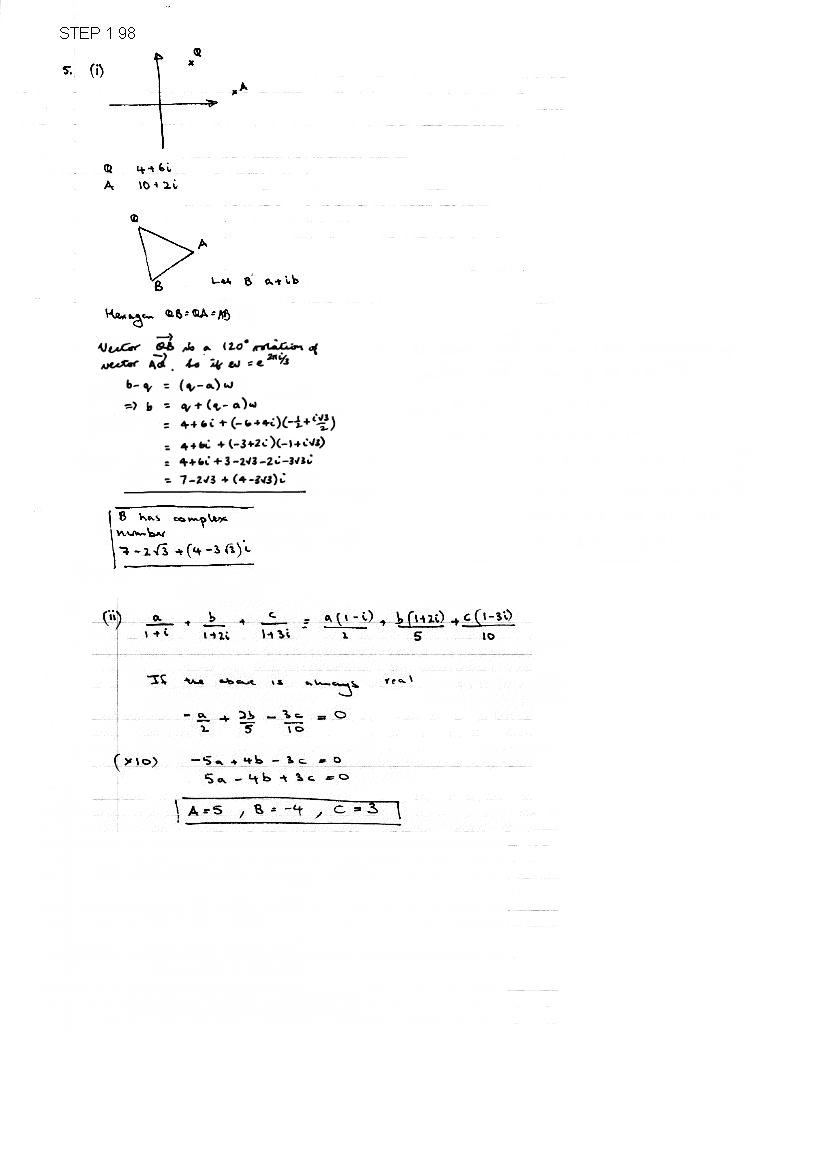 STEP 1 98
5. (i)
Q
A
Q 4+6i
A 10+2i
Q
A
B
Let B a+ib
Hexagon QB=QA=AB
Vector QB is a 120° rotation of
vector AQ. So if ω = e^{2πi/3}
b-q = (q-a)ω
=> b = q+(q-a)ω
= 4+6i + (-6+4i)(-1/2+i√3/2)
= 4+6i + (-3+2i)(-1+i√3)
= 4+6i+3-2√3-2i-3√3i
= 7-2√3 + (4-3√3)i
B has complex
number
7-2√3+(4-3√3)i
(ii) a/(1+i) + b/(1+2i) + c/(1+3i) = a(1-i)/2 + b(1+2i)/5 + c(1-3i)/10
If the above is always real
-a/2 + 2b/5 - 3c/10 = 0
(×10) -5a+4b-3c=0
5a-4b+3c=0
A=5, B=-4, C=3